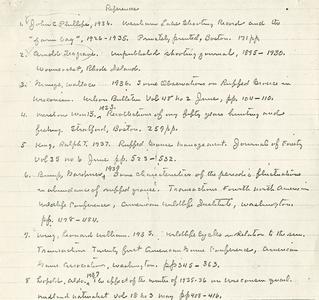 References
1. John C. Phillips, 1936. Wenham Lake Shooting Record and the
"farm bag", 1926-1935. Privately printed, Boston. 171pp
2. Arnold Unpublished shooting journal, 1895-1930.
Woonsocket, Rhode Island.
3. Wallace 1936. Some Observations on Ruffed Grouse in
Wisconsin. Wilson Bulletin Vol 48 no 2 June, pp. 104-110.
4. Wm B. 1925. Recollections of my fifty years hunting and
fishing. Stratford, Boston. 259pp.
5. King, Ralph T. 1937. Ruffed Grouse Management. Journal of Forestry
Vol 35 no 6 June pp. 523-532.
6. Bump, Gardiner, 1939 Some characteristics of the periodic fluctuations
in abundance of ruffed grouse. Transactions Fourth North American
Wildlife Conference, American Wildlife Institute, Washington.
pp. 478-484.
7. Wing, Leonard William. 1935. Wildlife Cycles in Relation to the sun.
Transactions Twenty first American Game Conference, American
Game Association, Washington. pp 345-363.
8 Leopold, Aldo. 1937 The effect of the winter of 1935-36 on Wisconsin quail.
midland naturalist vol 18 no 3 May pp 408-416.